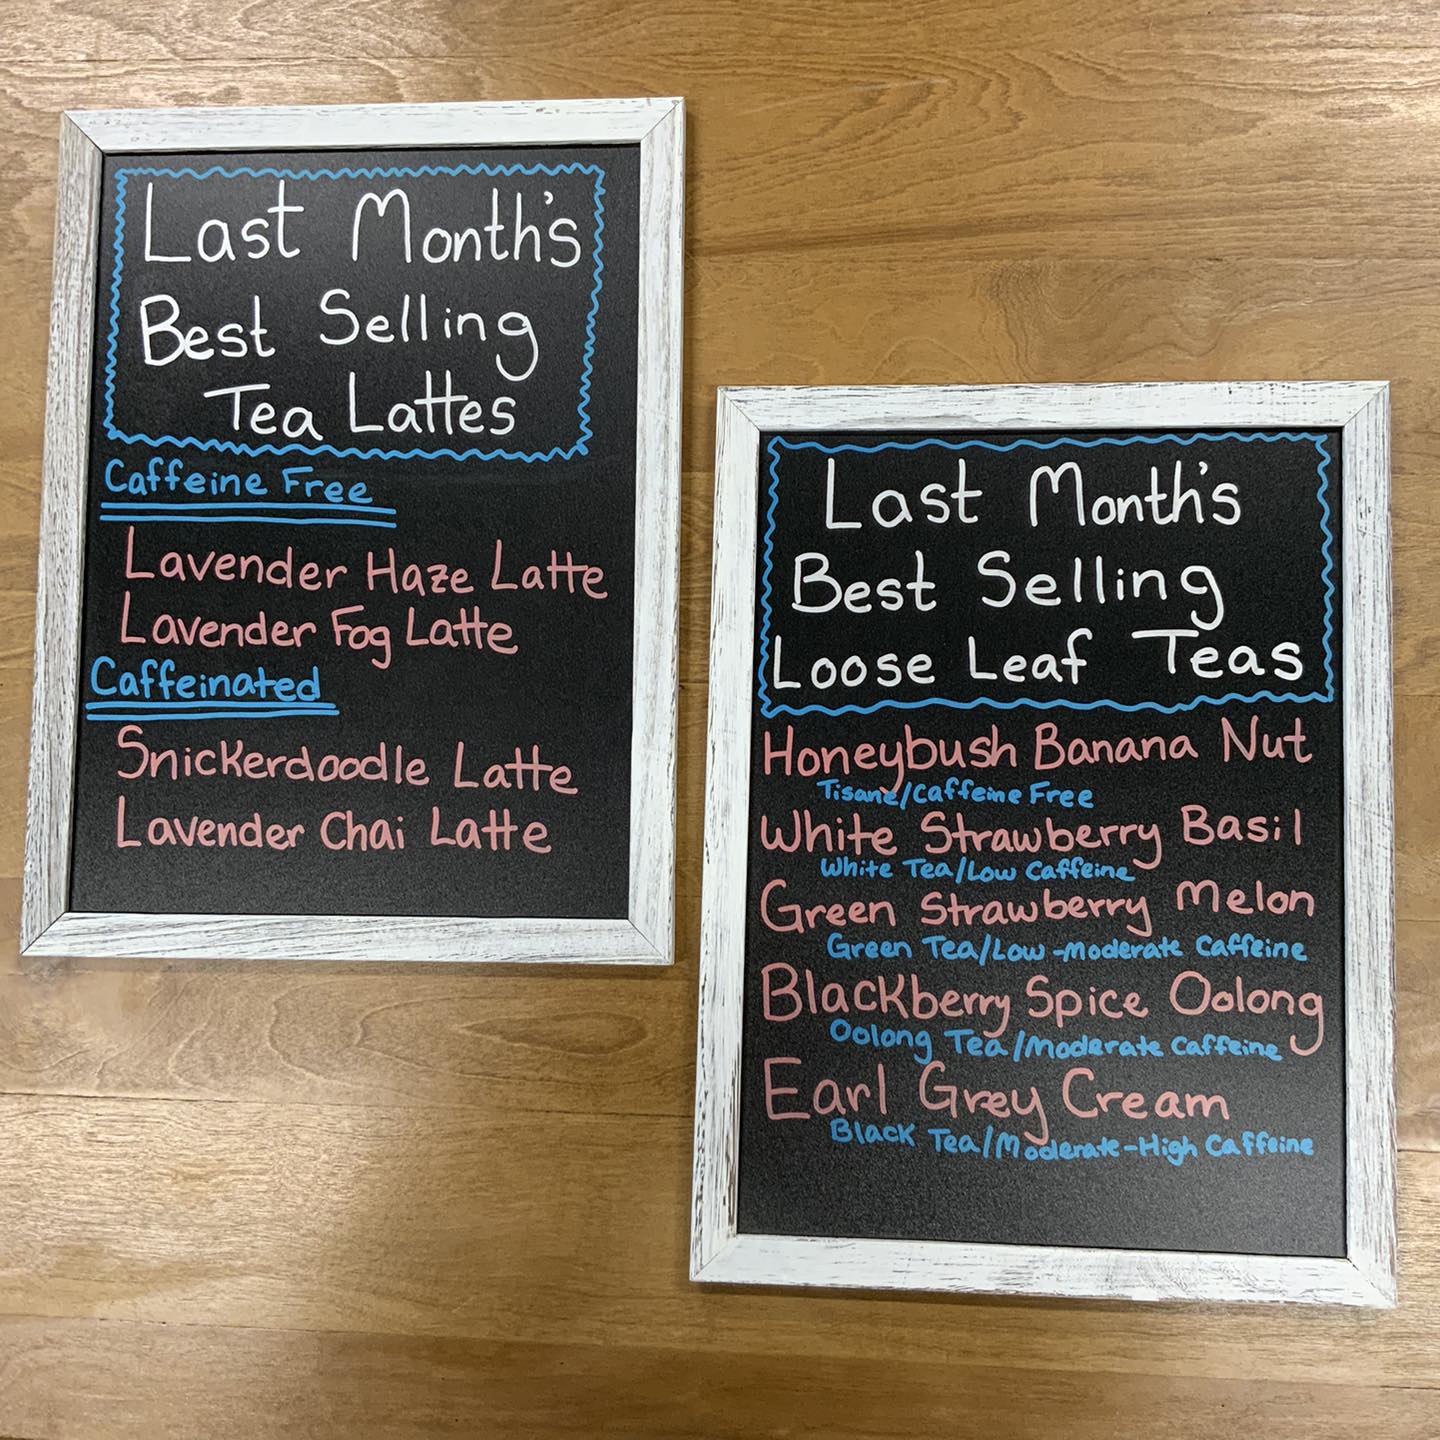 Last Month's
Best Selling
Tea Lattes
Caffeine Free
Lavender Haze Latte
Lavender Fog Latte
Caffeinated
Snickerdoodle Latte
Lavender Chai Latte
Last Month's
Best Selling
Loose Leaf Teas
Honeybush Banana Nut
Tisane/Caffeine Free
White Strawberry Basil
White Tea/Low Caffeine
Green Strawberry Melon
Green Tea/Low-Moderate Caffeine
Blackberry Spice Oolong
Oolong Tea/Moderate Caffeine
Earl Grey Cream
Black Tea/Moderate-High Caffeine